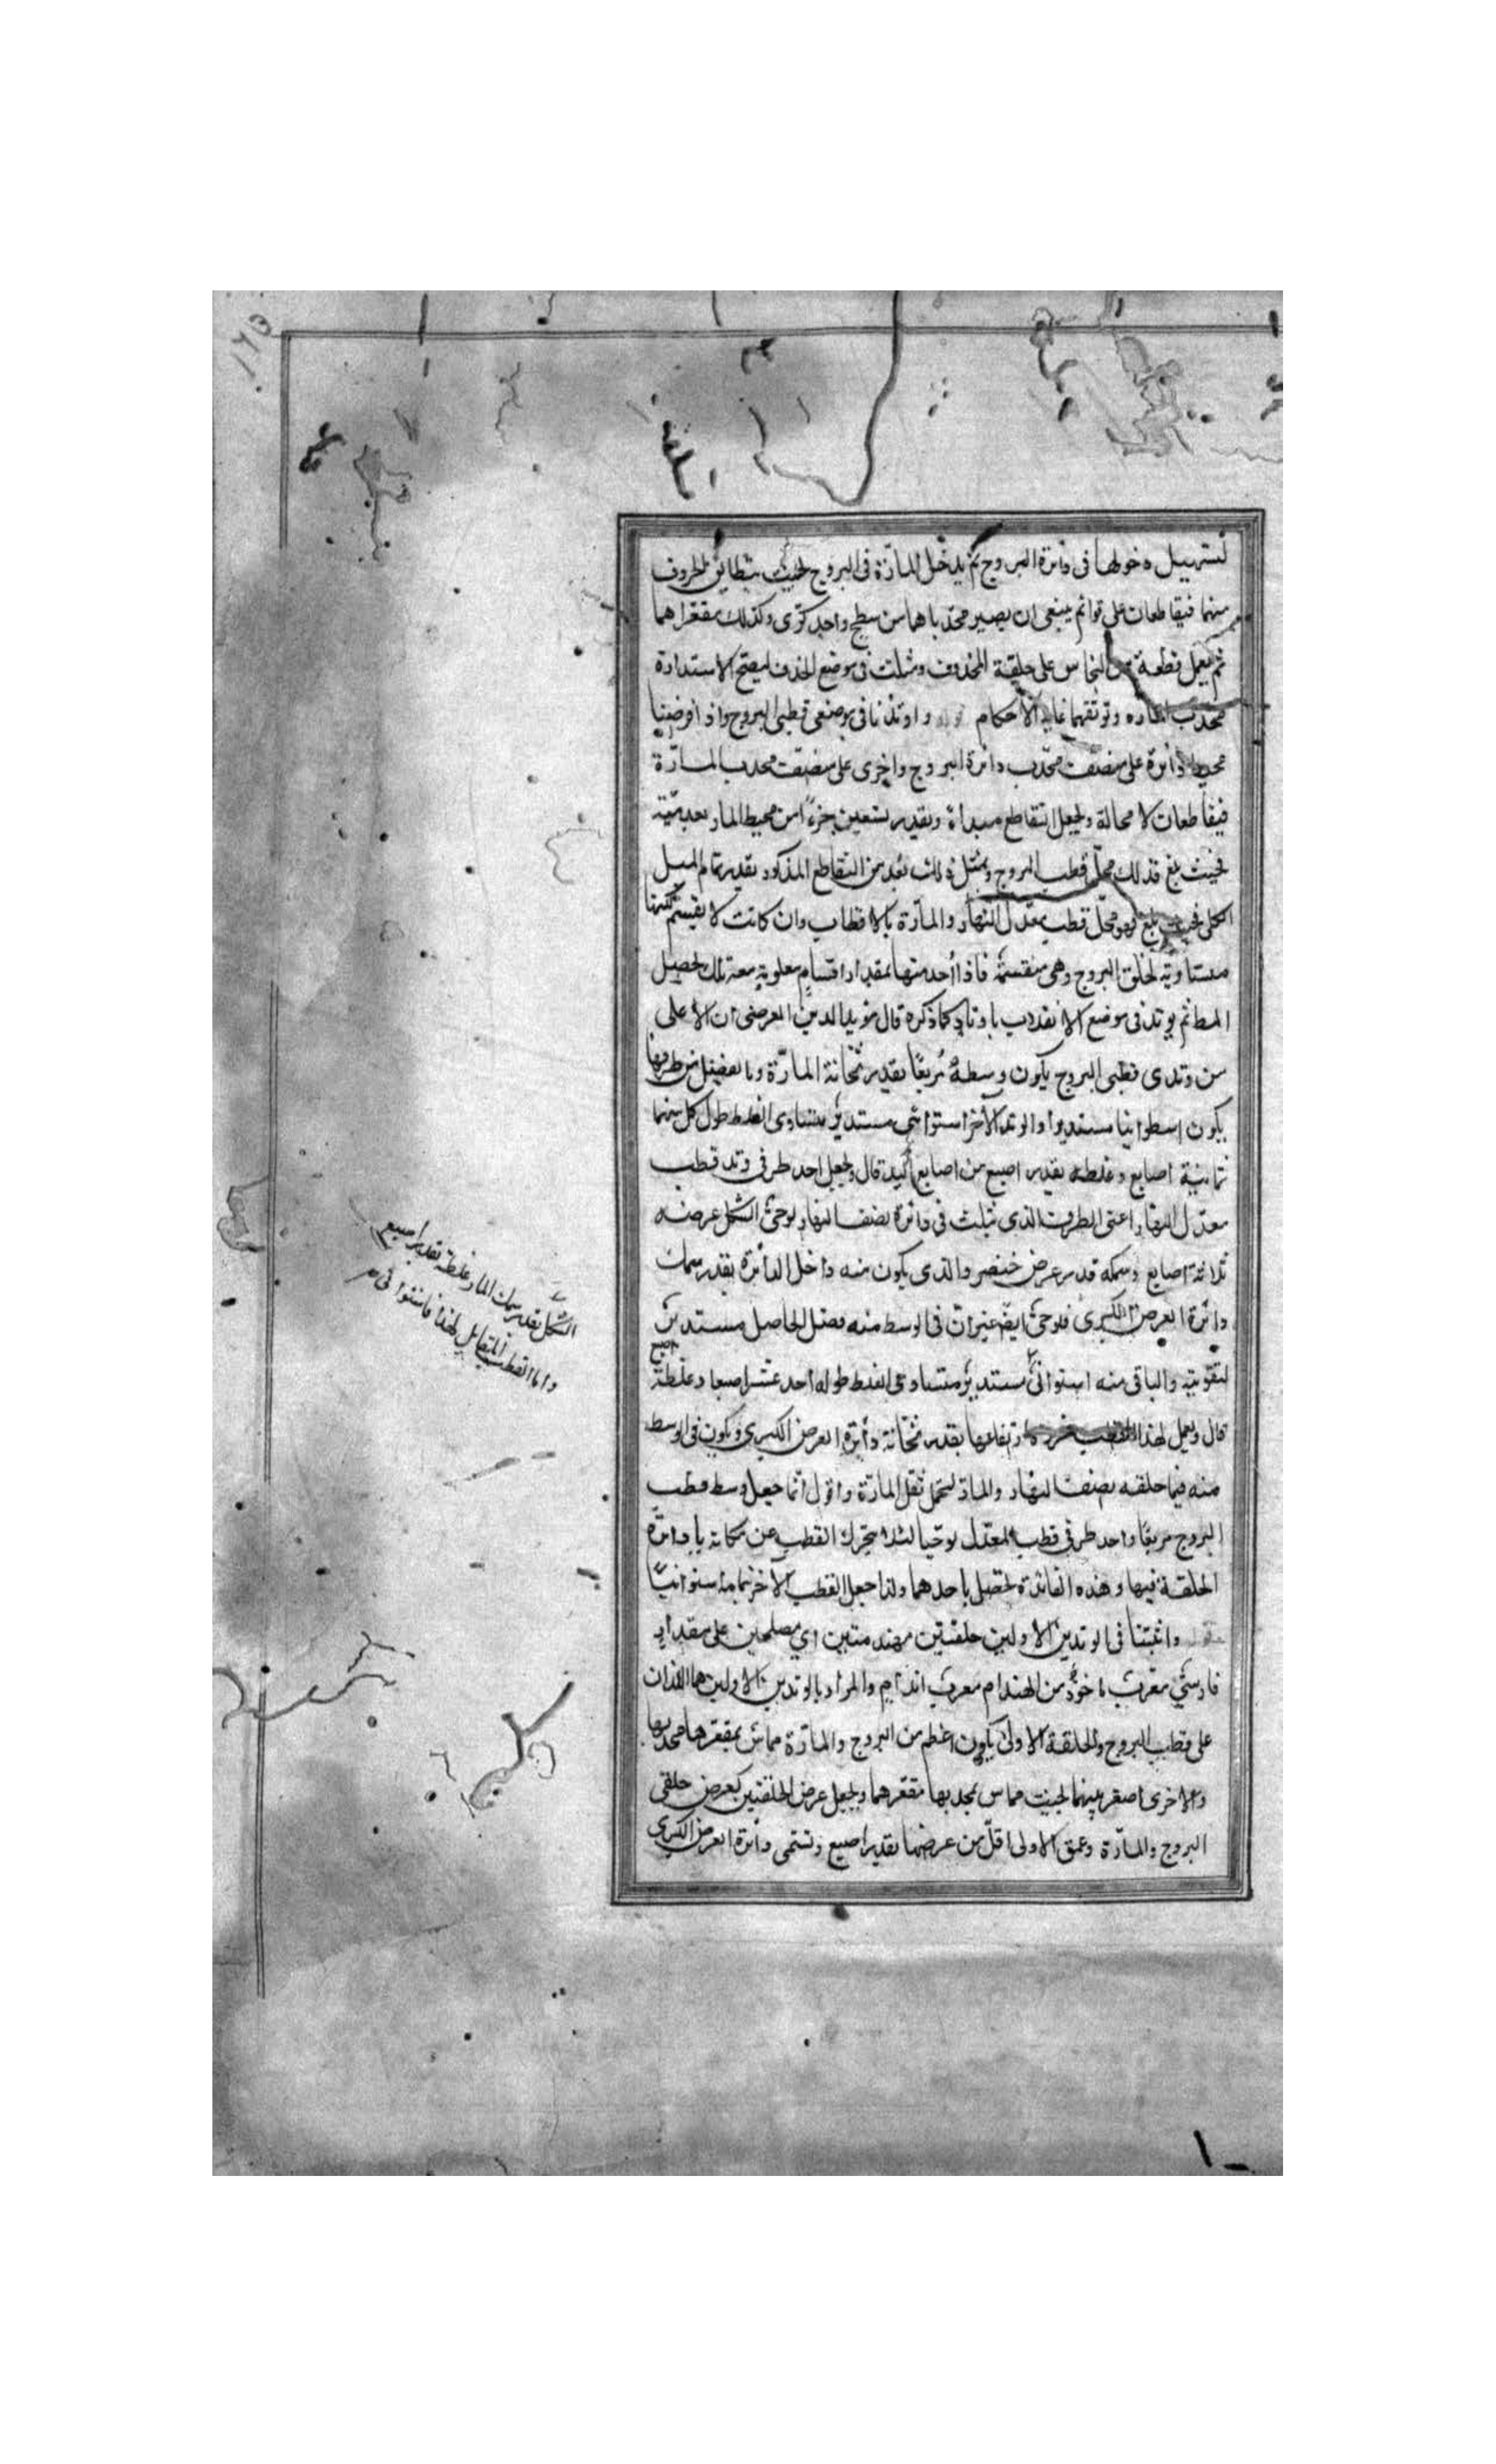 لتسهيل دخولها فى دائرة البروج ثم يدخل المارّة فى البروج بحيث يتطابق الحروف
منهما فيتقاطعان على قوائم ينبغى ان يصير محدّباهما من سطح واحد كرى وكذلك مقعراهما
ثم يعمل قطعة من النحاس على حلقة المحذوف ومثلت فى موضع الحذف ليصح الاستدارة
محدب المارّه وتوثقهما غاية الاحكام واوتدنا فى موضعى قطبى البروج واذا فرضنا
محيط دائرة على منصّف محدّب دائرة البروج واخرى على منصّف محدب المارّة
فيتقاطعان لا محالة ويجعل التقاطع مبداء وبقدر تسعين جزءًا من محيط المار بعد
فحيث بلغ فذلك محلّ قطب البروج وبمثل ذلك بعد من التقاطع المذكور بقدر تمام الميل
الكلى فحيث بلغ فهو محلّ قطب معدّل النهار والمارّة بالاقطاب وان كانت لا يقسم لكنها
مساوية لحلقة البروج وهى منقسمة فاذا أخذ منها بمقدار اقسام معلومة معه تلك يحصل
المط ثم يوتد فى موضع الا باوتاد كما ذكره قال مؤيد الدين العرضى ان الاعلى
من وتدى قطبى البروج يكون وسطه مربعًا بقدر ثخانة المارّة وما يفضل من طرفيها
يكون اسطوانيا مستديرا والوتد الآخر استوانى مستدير متساوى الغلظ طول كل منهما
ثمانية اصابع وغلظه بقدر اصبع من اصابع اليد قال ويجعل احد طرفى وتد قطب
معدّل النهار اعنى الطرف الذى يثبت فى دائرة نصف النهار لوحىّ الشكل عرضه
ثلاثة اصابع وسمكه قدر عرض خنصر والذى يكون منه داخل الدائرة بقدر سمك
دائرة العرض الكبرى فلوحىّ ايضً غير ان فى الوسط منه فضل الحاصل مستدير
لتقويته والباقى منه استوانىّ مستدير متساوى الغلظ طوله احد عشر اصبعا وغلظه اصبع
قال ويعمل لهذا القطب بقدر ثخانة دائرة العرض الكبرى ويكون فى الوسط
منه فيما حلقة نصف النهار والمارّ ليحمل ثقل المارّة واقول انما جعل وسط قطب
البروج مربعًا واحد طرفى قطب المعدّل لوحيا لئلا يتحرك القطب عن مكانه بادارة
الحلقة فيها وهذه الفائدة تحصل باحدهما ولذا جعل القطب الآخر بتمامه استوانيًا
واثبتنا فى الوتدين الاولين حلقتين مهندمتين اى مصلحين على مقدار
فارسىّ معرب ماخوذ من الهندام معرب اندام والمراد بالوتدين الاولين هما اللذان
على قطب البروج والحلقة الاولى يكون اعظم من البروج والمارّة مماسّ بمقعرها محدبها
والاخرى اصغر بينهما بحيث مماس محدبها مقعرهما ويجعل عرض الحلقتين كعرض حلقى
البروج والمارّة وعمق الاولى اقلّ من عرضها بقدر اصبع وتسمى دائرة العرض الكبرى
الشكل بقدر سمك المار وغلظه بقدر اصبع
واما القطب المقابل لهذا فاستوانى